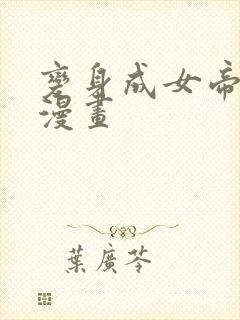 變身成女帝
漫畫
葉廣芩